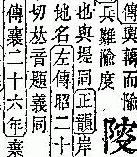 陵
傳輿轎而隃
兵難隃度
也與堤同正韻岸
地名左傳昭二十
切𠀤音題義同
傳襄二十六年棄